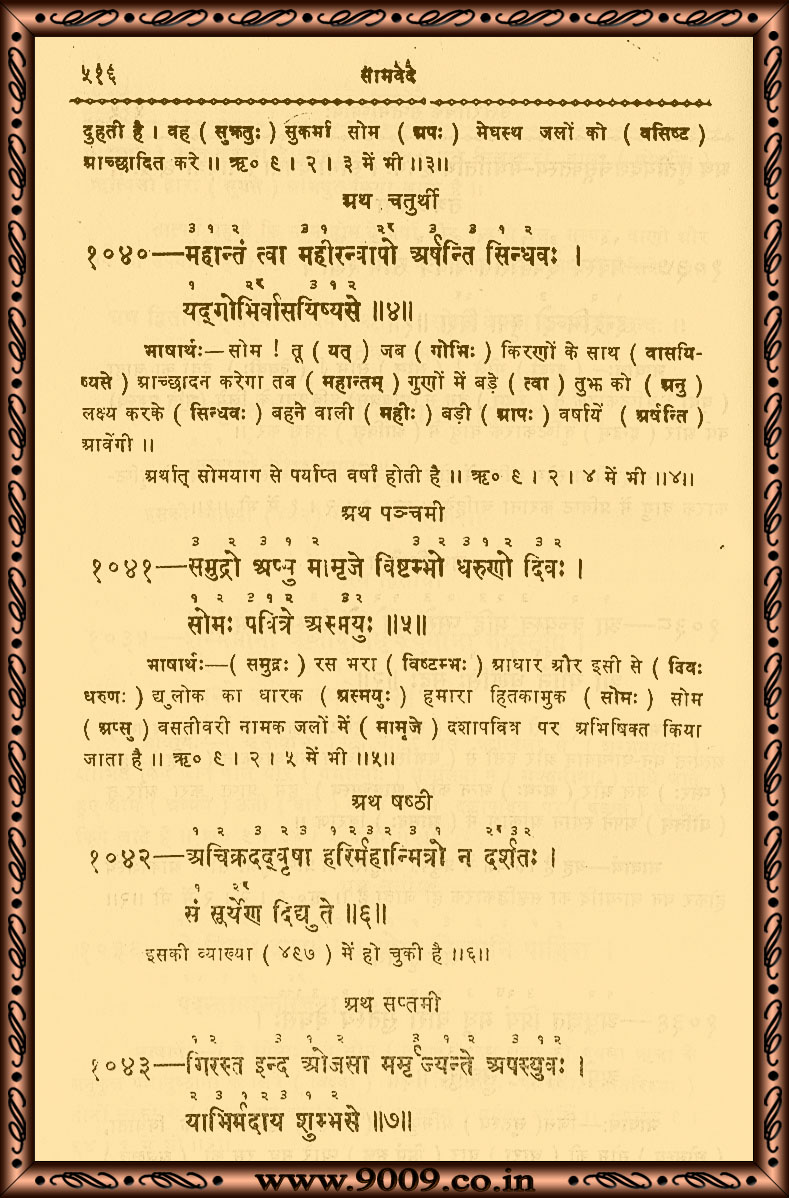 ५१६ सामवेदे
दुहती है । वह ( सुक्रतुः ) सुकर्मा सोम ( अपः ) मेघस्थ जलों को ( वसिष्ट )
आच्छादित करे ॥ ऋ० ९ । २ । ३ में भी ॥३॥
अथ चतुर्थी
३ १ २ ३ १ २र ३ ३ १ २
१०४०—महान्तं त्वा महीरन्वापो अर्षन्ति सिन्धवः ।
१ २र ३ १ २
यद्गोभिर्वासयिष्यसे ॥४॥
भाषार्थः—सोम ! तू ( यत् ) जब ( गोभिः ) किरणों के साथ ( वासयि-
ष्यसे ) आच्छादन करेगा तब ( महान्तम् ) गुणों में बड़े ( त्वा ) तुझ को ( अनु )
लक्ष्य करके ( सिन्धवः ) बहने वाली ( महीः ) बड़ी ( आपः ) वर्षायें ( अर्षन्ति )
आवेंगी ॥
अर्थात् सोमयाग से पर्याप्त वर्षा होती है ॥ ऋ० ९ । २ । ४ में भी ॥४॥
अथ पञ्चमी
३ २ ३ १ २ ३ २ ३ १ २ ३ २
१०४१—समुद्रो अप्सु मामृजे विष्टम्भो धरुणो दिवः ।
१ २ ३ १ २ ३ २
सोमः पवित्रे अस्मयुः ॥५॥
भाषार्थः—( समुद्रः ) रस भरा ( विष्टम्भः ) आधार और इसी से ( दिवः
धरुणः ) द्युलोक का धारक ( अस्मयुः ) हमारा हितकामुक ( सोमः ) सोम
( अप्सु ) वसतीवरी नामक जलों में ( मामृजे ) दशापवित्र पर अभिषिक्त किया
जाता है ॥ ऋ० ९ । २ । ५ में भी ॥५॥
अथ षष्ठी
१ २ ३ २ ३ १ २ ३ २ ३ १ २र ३ २
१०४२—अचिक्रदद्वृषा हरिर्महान्मित्रो न दर्शतः ।
१ २र
सं सूर्येण दिद्युते ॥६॥
इसकी व्याख्या ( ४९७ ) में हो चुकी है ॥६॥
अथ सप्तमी
१ २ ३ १ २ ३ १ २ ३ १ २
१०४३—गिरस्त इन्द ओजसा मर्मृज्यन्ते अपस्युवः ।
२ ३ १ २ ३ १ २
याभिर्मदाय शुम्भसे ॥७॥
www.9009.co.in